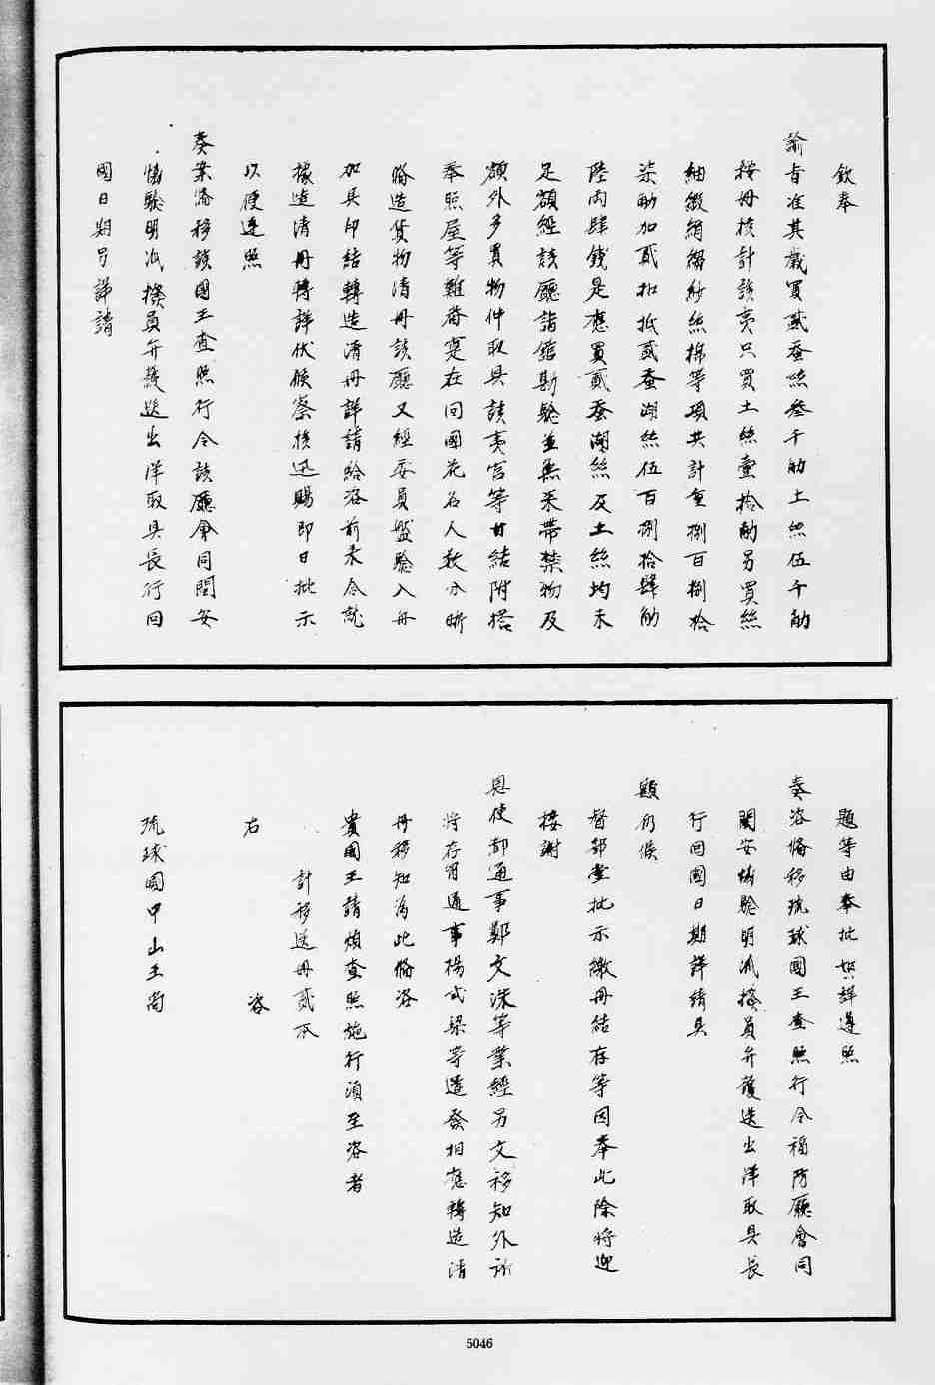 欽奉
諭旨准其歲買貳蚕絲叁千觔土絲伍千觔
按冊核計該夷只買土絲壹拾觔另買絲
紬緞絹縐紗絲棉等項共計重捌百捌拾
柒觔加貳扣抵貳蚕湖絲伍百捌拾肆觔
陸両肆錢是應買貳蚕湖絲及土絲均未
足額經該廳詣館勘驗並無夾帶禁物及
額外多買物件取具該夷官等甘結附搭
奉照屋等難番寔在回國花名人数分晰
俻造貨物清冊該廳又經委員盤驗入冊
加具印結轉造清冊詳請給咨前来合就
據造清冊轉詳伏候察核迅賜即日批示
以便遵照
奏案俻移該國王查照行令該廳會同閩安
協驗明汛撥員弁護送出洋取具長行回
國日期另詳請
題等由奉批如詳遵照
奏咨俻移琉球國王查照行令福防廳會同
閩安協驗明汛撥員弁護送出洋取具長
行回國日期詳請具
題仍候
督部堂批示繳冊結存等因奉此除将迎
接謝
恩使都通事鄭文洙等業經另文移知外所
将存留通事楊式梁等遣發相應轉造清
冊移知為此俻咨
貴國王請煩查照施行須至咨者
計移送冊貳本
右咨
琉球國中山王尚
5046